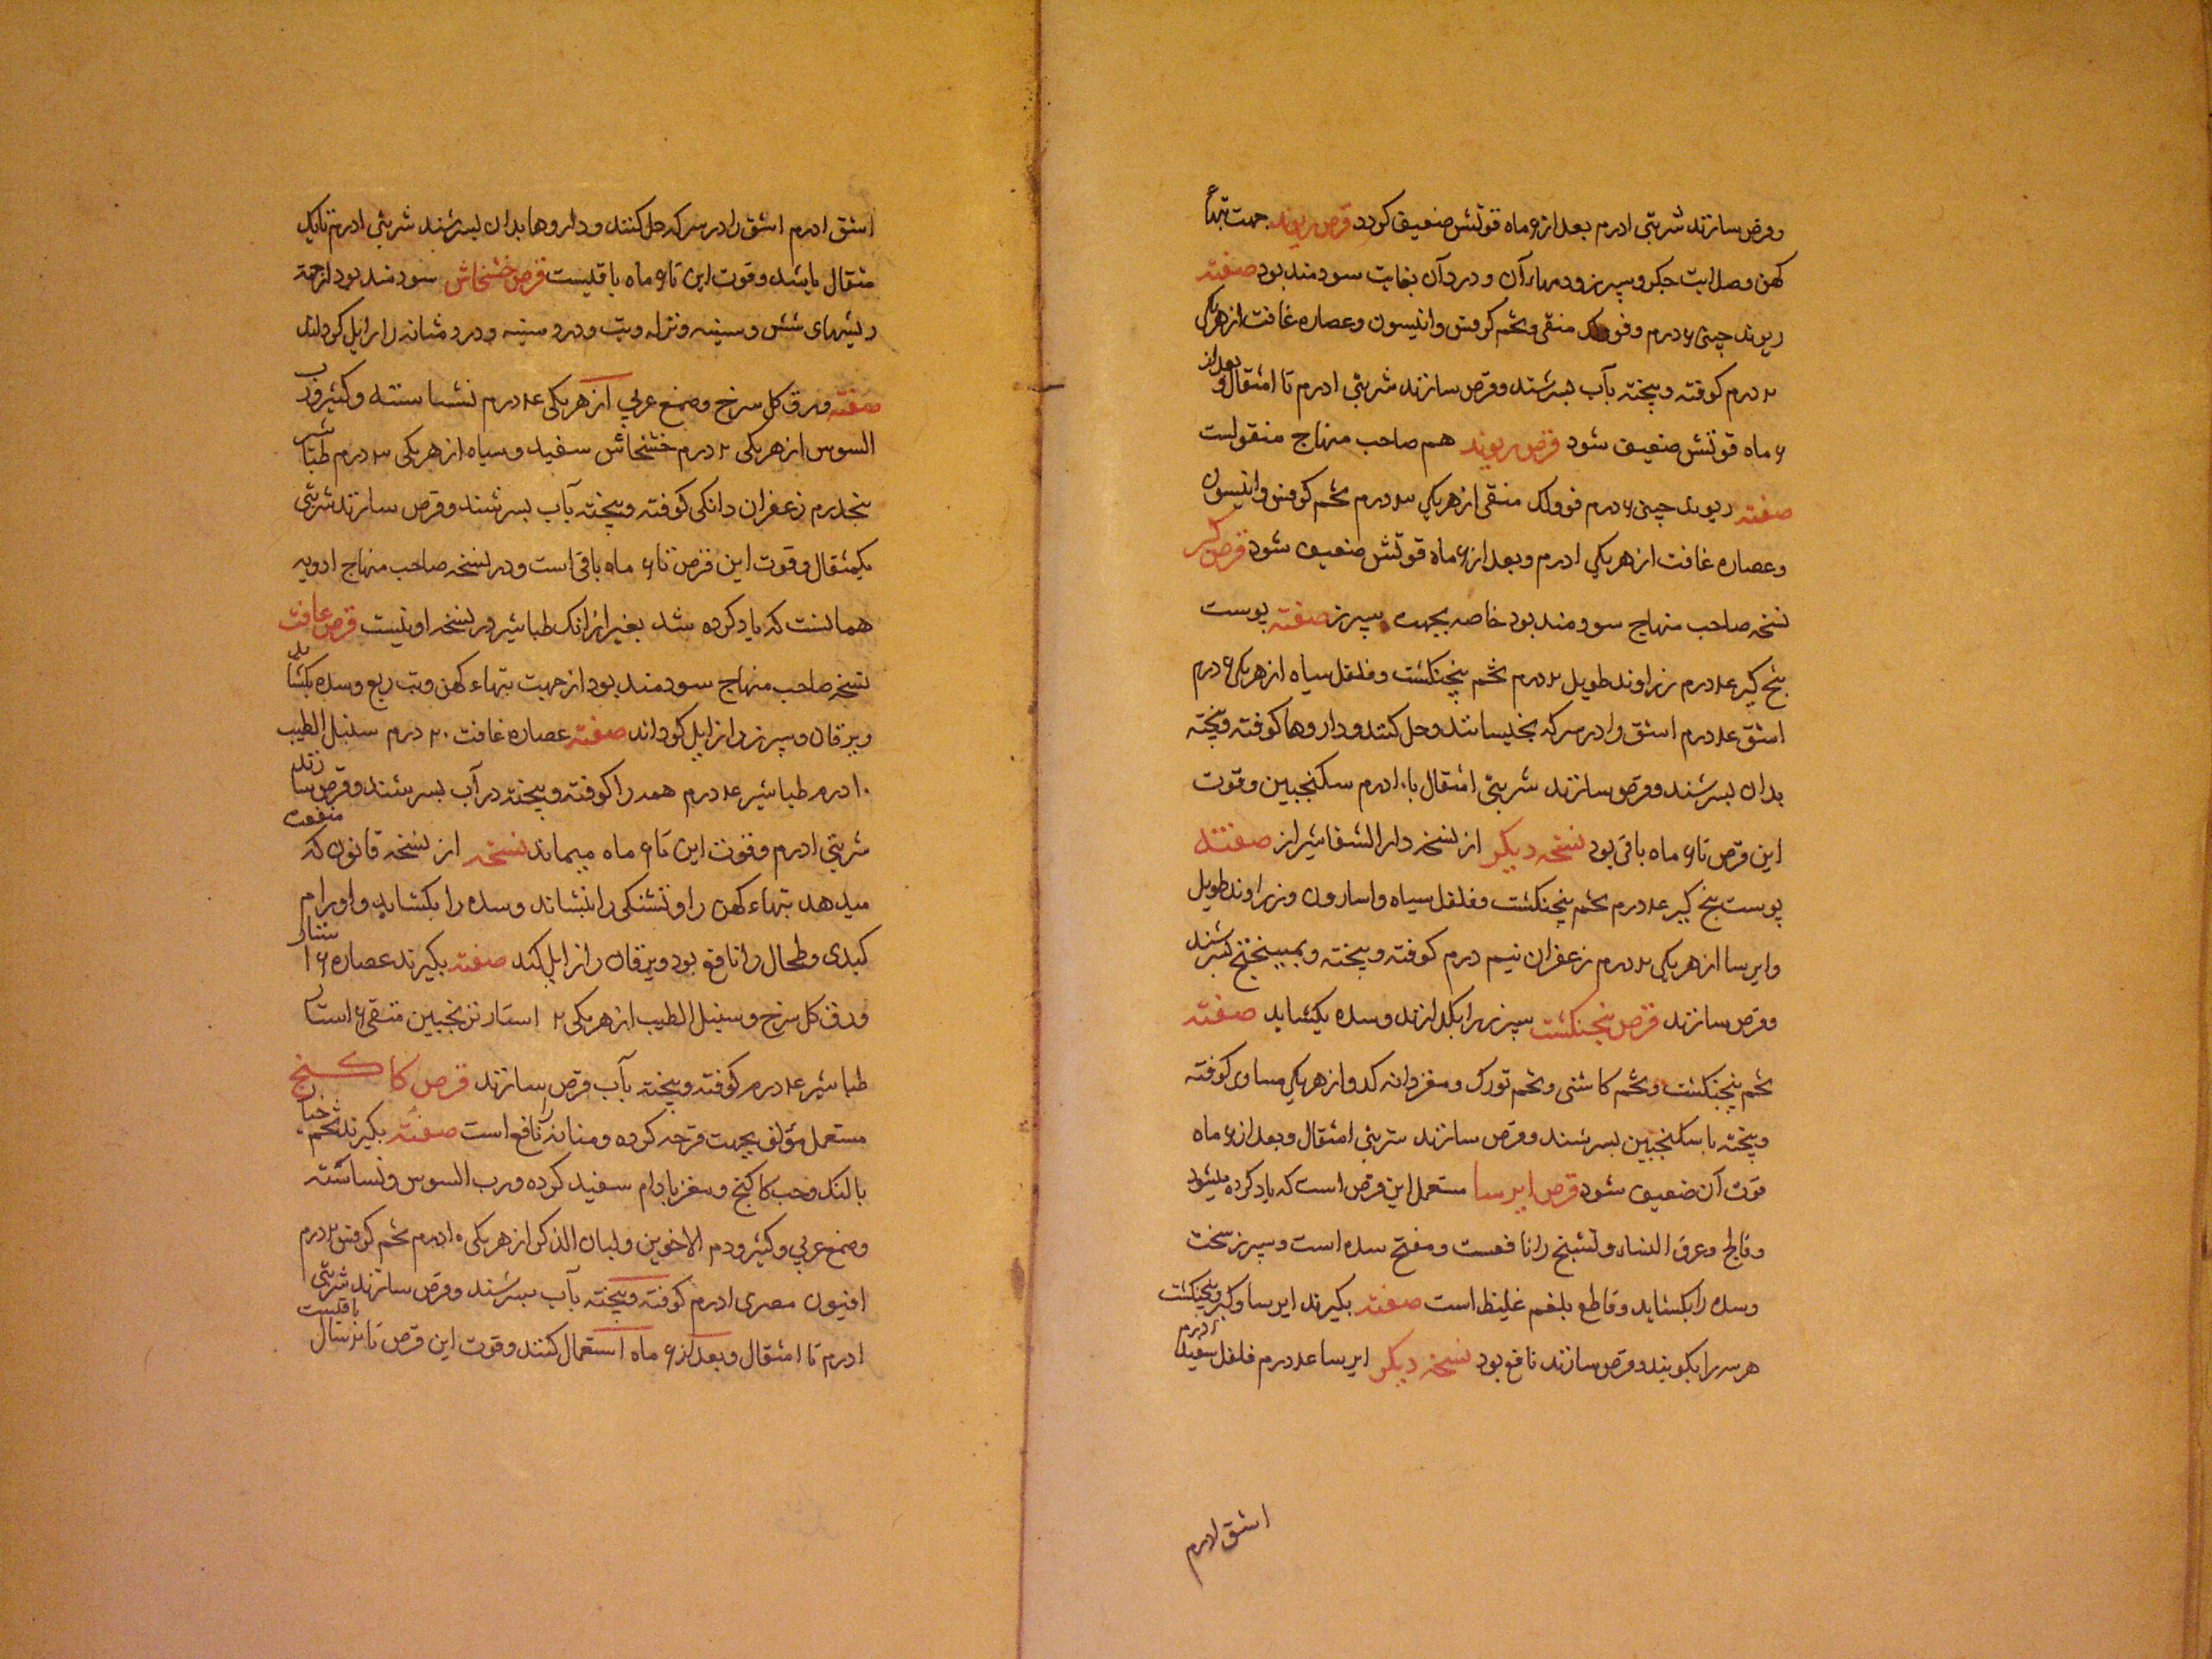 وقرص سازند شربتی ۱درم بعد از ۶ ماه قوتش ضعیف کردد قرص ریوند جهت تبهاء
کهن وصلابت جکر وسپرز وورمهاء آن ودرد آن بغایت سودمند بود صفته
ریوند چینی ۶ درم وفو ولک منقی وتخم کرفس وانیسون وعصاره غافت از هریکی
۳ درم کوفته وبیخته بآب بسرشند وقرص سازند شربتی ۱درم تا ۱مثقال وبعد از
۶ ماه قوتش ضعیف شود قرص ریوند هم صاحب منهاج منقولست
صفته ریوند چینی ۶ درم فو ولک منقی از هریکی ۳ درم تخم کرفس وانیسون
وعصاره غافت از هریکی ۱درم وبعد از ۶ ماه قوتش ضعیف شود قرص کبر
نسخه صاحب منهاج سودمند بود خاصه بجهت سپرز صفته پوست
بیخ کبر ۴ درم زراوند طویل ۲ درم تخم پنجنکشت وفلفل سیاه از هریکی ۶ درم
اشق ۴ درم اشق را در سرکه بخیسانند وحل کنند وداروها کوفته وبیخته
بدان بسرشند وقرص سازند شربتی ۱مثقال با ۱۰درم سکنجبین وقوت
این قرص تا ۶ ماه باقی بود نسخه دیکر از نسخه دار الشفا شیراز صفته
پوست بیخ کبر ۴ درم تخم پنجنکشت وفلفل سیاه واسارون وزراوند طویل
وایرسا از هریکی ۲ درم زعفران نیم درم کوفته وبیخته وبمیبختج بسرشند
وقرص سازند قرص پنجنکشت سپرز را بکدازند وسده بکشاید صفته
تخم پنجنکشت وتخم کاشنی وتخم تورک ومغز دانه کدو از هریکی مساوی کوفته
وبیخته با سکنجبین بسرشند وقرص سازند شربتی ۱مثقال وبعد از ۶ ماه
قوت آن ضعیف شود قرص ایرسا مستعمل این قرص است که یاد کرده میشود
وفالج وعرق النساء وتشنج را نافعست ومفتح سده است وسپرز سخت
وسده را بکشاید وقاطع بلغم غلیظ است صفته بکیرند ایرسا وکبر وپنجنکشت
هرسه را بکوبند وقرص سازند نافع بود نسخه دیکر ایرسا ۴ درم فلفل سفید ۱درم
اشق ۱درم
اشق ۱درم اشق را در سرکه حل کنند وداروها بدان بسرشند شربتی ۱درم تا یک
مثقال باشد وقوت این تا ۶ ماه باقیست قرص خشخاش سودمند بود از جهة
ریشهای شش وسینه ونزله وتب ودرد سینه ودرد مثانه را زایل کرداند
صفته ورق کل سرخ وصمغ عربی از هریکی ۴ درم نشاسته وکثیرورب
السوس از هریکی ۲ درم خشخاش سفید وسیاه از هریکی ۳ درم طباشیر
پنجدرم زعفران دانکی کوفته وبیخته بآب بسرشند وقرص سازند شربتی
یکمثقال وقوت این قرص تا ۶ ماه باقی است ودر نسخه صاحب منهاج ادویه
همانست که یاد کرده شد بغیر از انک طباشیر در نسخه او نیست قرص غافت
نسخه صاحب منهاج سودمند بود از جهت تبهاء کهن وتب ربع وسده بکشاید
ویرقان وسپرز را زایل کرداند صفته عصاره غافت ۲۰ درم سنبل الطیب
۱۰درم طباشیر ۴ درم همه را کوفته وبیخته در آب بسرشند وقرص سازند
شربتی ۱درم وقوت این تا ۶ ماه میماند نسخه از نسخه قانون که منفعت
میدهد تبهاء کهن را وتشنکی را بنشاند وسده را بکشاید واورام
کبدی وطحال را نافع بود ویرقان را زایل کند صفته بکیرند عصاره ۱۶ ستار
ورق کل سرخ وسنبل الطیب از هریکی ۲ استار ترنجبین منقی ۶ استار
طباشیر ۴ درم کوفته وبیخته بآب قرص سازند قرص کاکنج
مستعمل مؤلف بجهت قرحه کرده ومثانه را نافع است صفته بکیرند تخم خیار
بالنک وحب کاکنج ومغز بادام سفید کرده ورب السوس ونشاسته
وصمغ عربی وکثیرودم الاخوین ولبان الذکر از هریکی ۱۰درم تخم کرفس ۲ درم
افیون مصری ۱درم کوفته وبیخته بآب بسرشند وقرص سازند شربتی
۱درم تا ۱مثقال وبعد از ۶ ماه استعمال کنند وقوت این قرص تا دو سال باقیست